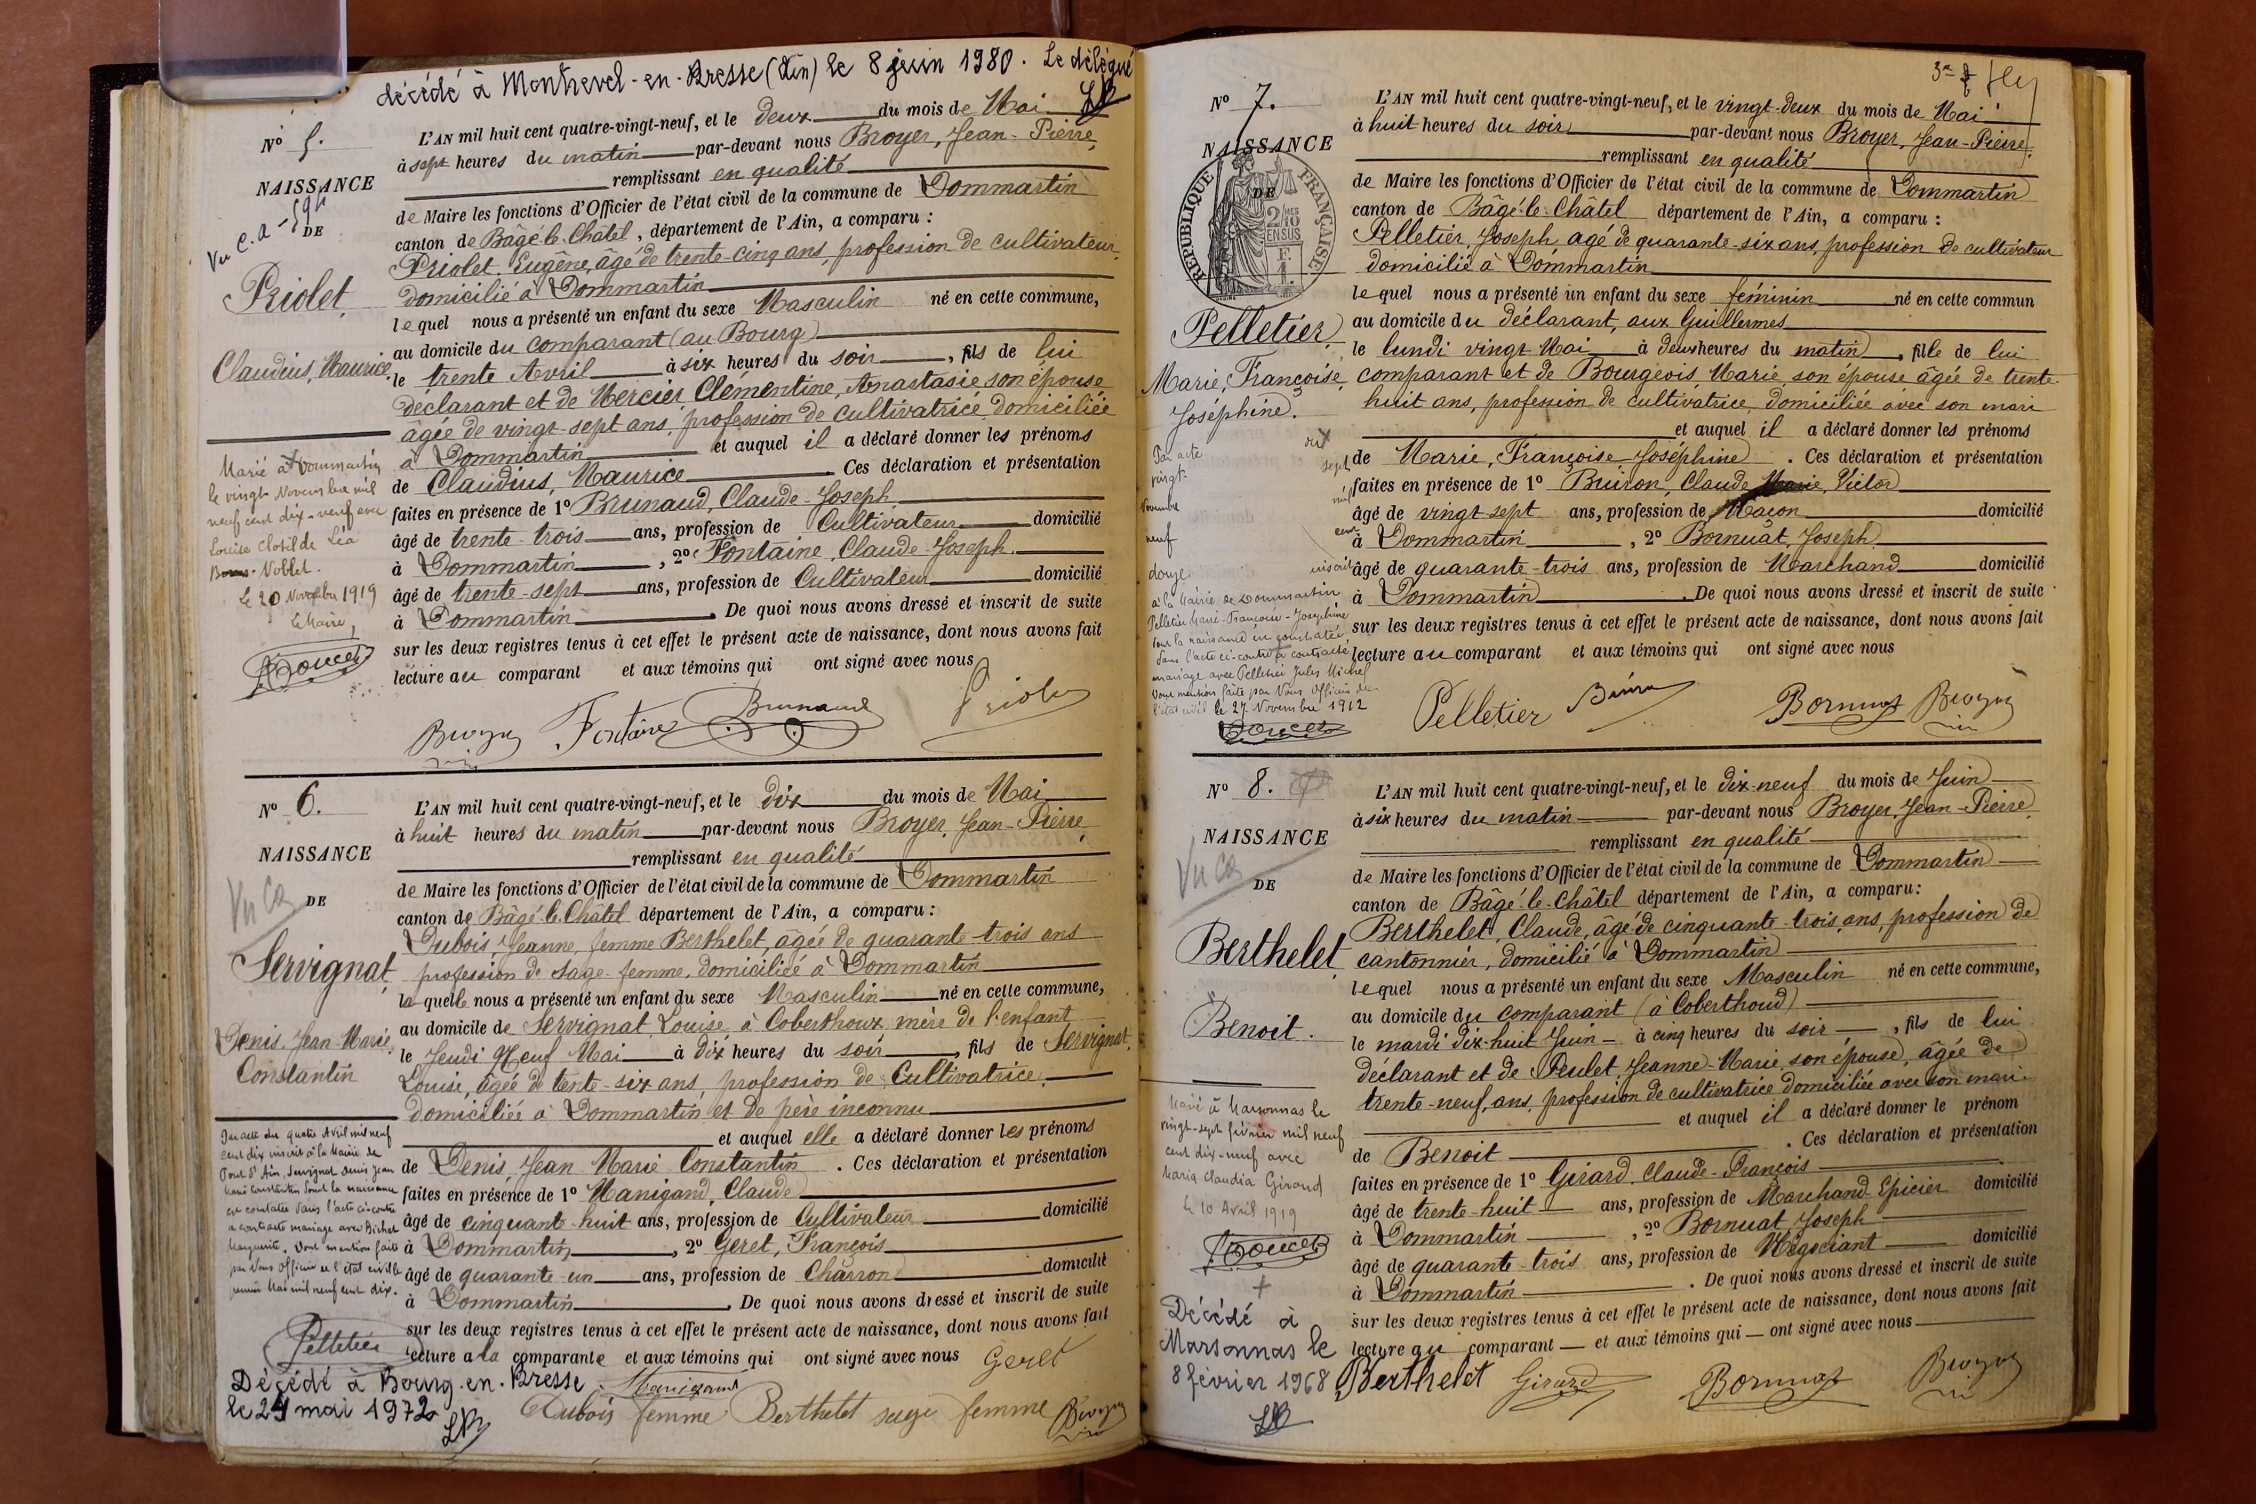 décédé à Montrevel-en-Bresse (Ain) le 8 juin 1980. Le délégué
Nº 5.
NAISSANCE
DE
Vu c.a
Priolet,
Claudius, Maurice
L'AN mil huit cent quatre-vingt-neuf, et le deux du mois de Mai
à sept heures du matin par-devant nous Broyer, Jean-Pierre,
remplissant en qualité
de Maire les fonctions d'Officier de l'état civil de la commune de Dommartin
canton de Bâgé-le-Châtel, département de l'Ain, a comparu :
Priolet, Eugène, âgé de trente-cinq ans, profession de cultivateur,
domicilié à Dommartin
lequel nous a présenté un enfant du sexe Masculin né en cette commune,
au domicile du comparant (au Bourg)
le trente Avril à six heures du soir, fils de lui
déclarant et de Mercier Clémentine, Anastasie son épouse
âgée de vingt-sept ans, profession de cultivatrice, domiciliée
à Dommartin et auquel il a déclaré donner les prénoms
de Claudius, Maurice. Ces déclaration et présentation
faites en présence de 1º Brunaud, Claude-Joseph
âgé de trente-trois ans, profession de Cultivateur domicilié
à Dommartin, 2º Fontaine, Claude-Joseph
âgé de trente-sept ans, profession de Cultivateur domicilié
à Dommartin. De quoi nous avons dressé et inscrit de suite
sur les deux registres tenus à cet effet le présent acte de naissance, dont nous avons fait
lecture au comparant et aux témoins qui ont signé avec nous
Marié à Dommartin
le vingt Novembre mil
neuf cent dix-neuf avec
Louise Clotilde Léa
Noblet.
Le 20 Novembre 1919
Le Maire,
Doucet
Broyer Fontaine Brunaud Priolet
Nº 6.
NAISSANCE
DE
Vu ca
Servignat,
Denis, Jean-Marie,
Constantin
L'AN mil huit cent quatre-vingt-neuf, et le dix du mois de Mai
à huit heures du matin par-devant nous Broyer, Jean-Pierre,
remplissant en qualité
de Maire les fonctions d'Officier de l'état civil de la commune de Dommartin
canton de Bâgé-le-Châtel département de l'Ain, a comparu :
Dubois, Jeanne, femme Berthelet, âgée de quarante-trois ans
profession de sage-femme, domiciliée à Dommartin
laquelle nous a présenté un enfant du sexe Masculin né en cette commune,
au domicile de Servignat Louise, à Coberthoux, mère de l'enfant
le Jeudi Neuf Mai à dix heures du soir, fils de Servignat,
Louise, âgée de tente-six ans, profession de Cultivatrice,
domiciliée à Dommartin, et de père inconnu
et auquel elle a déclaré donner les prénoms
de Denis, Jean Marie Constantin. Ces déclaration et présentation
faites en présence de 1º Manigand, Claude
âgé de cinquante-huit ans, profession de Cultivateur domicilié
à Dommartin, 2º Geret, François
âgé de quarante-un ans, profession de Charron domicilié
à Dommartin. De quoi nous avons dressé et inscrit de suite
sur les deux registres tenus à cet effet le présent acte de naissance, dont nous avons fait
lecture à la comparante et aux témoins qui ont signé avec nous Geret
Par acte du quatre Avril mil neuf
cent dix inscrit à la Mairie de
Pont d'Ain, Servignat Denis Jean
Marie Constantin dont la naissance
est constatée dans l'acte ci-contre
a contracté mariage avec Bichet
Marguerite. Dont mention faite
par Nous Officier de l'état civil le
premier Mai mil neuf cent dix.
Pelletier
Décédé à Bourg-en-Bresse
le 24 mai 1972
Manigand
Dubois femme Berthelet sage femme Broyer
Nº 7.
NAISSANCE
DE
RÉPUBLIQUE FRANÇAISE
2/10 EN SUS
Pelletier,
Marie, Françoise,
Joséphine.
L'AN mil huit cent quatre-vingt-neuf, et le vingt-deux du mois de Mai
à huit heures du soir par-devant nous Broyer, Jean-Pierre,
remplissant en qualité
de Maire les fonctions d'Officier de l'état civil de la commune de Dommartin
canton de Bâgé-le-Châtel département de l'Ain, a comparu :
Pelletier, Joseph âgé de quarante-six ans, profession de cultivateur
domicilié à Dommartin
lequel nous a présenté un enfant du sexe féminin né en cette commun
au domicile du déclarant, aux Guillermes
le lundi vingt Mai à deux heures du matin, fille de lui
comparant et de Bourgeois Marie, son épouse âgée de trente-
huit ans, profession de cultivatrice, domiciliée avec son mari
et auquel il a déclaré donner les prénoms
de Marie, Françoise Joséphine. Ces déclaration et présentation
faites en présence de 1º Buiron, Claude Marie, Victor
âgé de vingt-sept ans, profession de Maçon domicilié
à Dommartin, 2º Bornuat, Joseph
âgé de quarante-trois ans, profession de Marchand domicilié
à Dommartin. De quoi nous avons dressé et inscrit de suite
sur les deux registres tenus à cet effet le présent acte de naissance, dont nous avons fait
lecture au comparant et aux témoins qui ont signé avec nous
Par acte
vingt-sept
Novembre mil
neuf cent
douze inscrit
à la Mairie de Dommartin
Pelletier Marie-Françoise-Joséphine
dont la naissance est constatée
dans l'acte ci-contre a contracté
mariage avec Pelletier Jules Michel
Dont mention faite par Nous Officier de
l'état civil le 27 Novembre 1912
Doucet
Pelletier Buiron Bornuat Broyer
Nº 8.
NAISSANCE
DE
Vu ca
Berthelet,
Benoit.
L'AN mil huit cent quatre-vingt-neuf, et le dix-neuf du mois de Juin
à six heures du matin par-devant nous Broyer, Jean-Pierre,
remplissant en qualité
de Maire les fonctions d'Officier de l'état civil de la commune de Dommartin
canton de Bâgé-le-Châtel département de l'Ain, a comparu :
Berthelet, Claude, âgé de cinquante-trois ans, profession de
cantonnier, domicilié à Dommartin
lequel nous a présenté un enfant du sexe Masculin né en cette commune,
au domicile du comparant (à Coberthoud)
le mardi dix-huit Juin à cinq heures du soir, fils de lui
déclarant et de Peulet, Jeanne-Marie, son épouse, âgée de
trente-neuf, ans, profession de cultivatrice domiciliée avec son mari
et auquel il a déclaré donner le prénom
de Benoit. Ces déclaration et présentation
faites en présence de 1º Girard, Claude-François
âgé de trente-huit ans, profession de Marchand-Epicier domicilié
à Dommartin, 2º Bornuat, Joseph
âgé de quarante-trois ans, profession de Négociant domicilié
à Dommartin. De quoi nous avons dressé et inscrit de suite
sur les deux registres tenus à cet effet le présent acte de naissance, dont nous avons fait
lecture au comparant et aux témoins qui ont signé avec nous
Marié à Marsonnas le
vingt-sept février mil neuf
cent dix-neuf avec
Maria Claudia Giraud
Le 10 Avril 1919
Doucet
Décédé à
Marsonnas le
8 février 1968
Berthelet Girard Bornuat Broyer